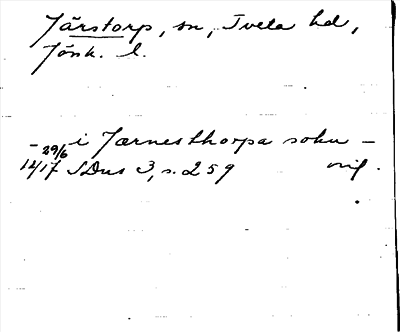 Järstorp, sn, Tveta hd,
Jönk. l.
- i Jærnesthorpa sokn -
29/6 1417 SDns 3, s. 259 orig.